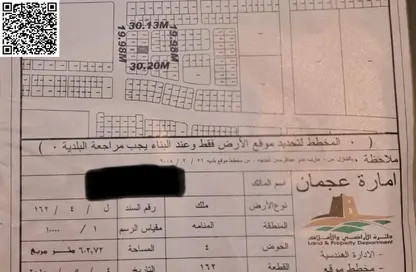 30.13M
19.98M
19.98M
30.20M
( ٠ المخطط لتحديد موقع الأرض فقط وعند البناء يجب مراجعة البلدية ٠ )
ملاحظة
امارة عجمان
اسم المالك
نوع الأرض
ملك
رقم السند
ل / ٤ / ١٦٢
المنطقة
المنامه
مقياس الرسم
١ / ١٠٠٠٠
الحوض
٤
المساحة
٦٠٣,٧٢ متر مربع
القطعة
١٦٢
دائرة الأراضي والأملاك
Land & Property Department
٠ الادارة الهندسية